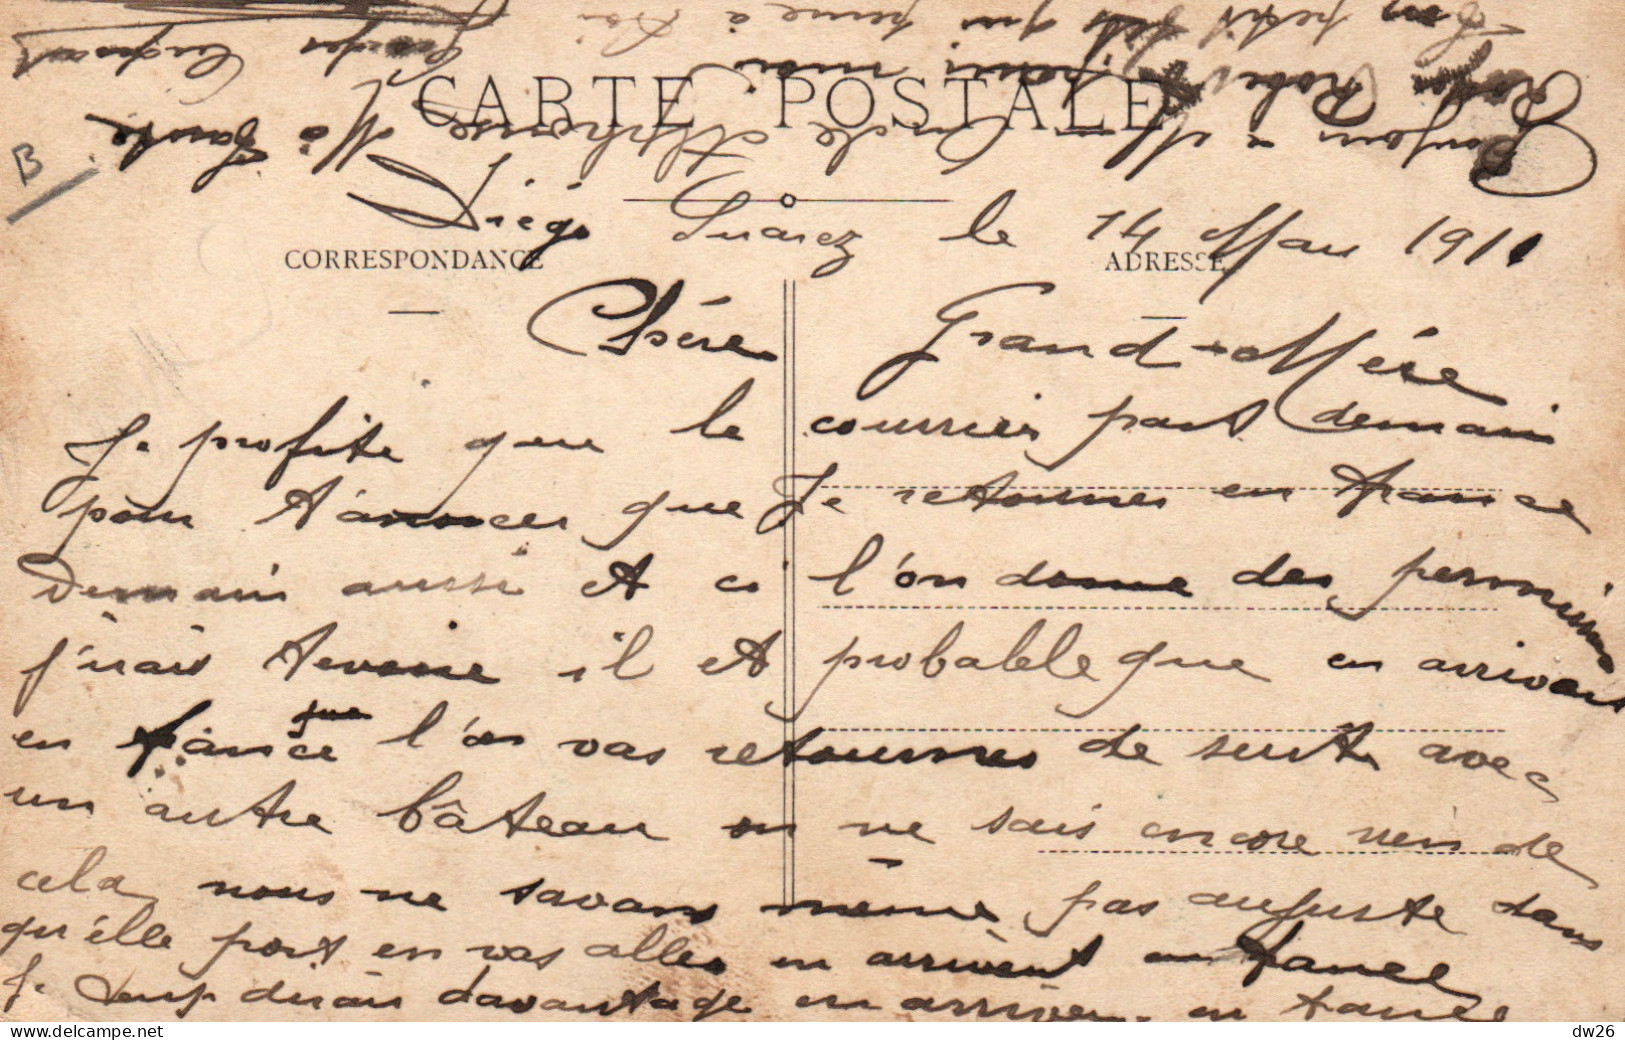 CARTE POSTALE
CORRESPONDANCE
ADRESSE
B
Diégo Suarez le 14 Mars 1911
Chère Grand-Mére
Je profite que le courrier part demain
pour t'anoncer que Je retournes en france
Demain aussi et ci l'on donne des permissions
j'irais te voire il et probablele que en arrivant
en france que l'on vas retournes de suite avec
un autre bâteau on ne sais encore rien de
cela nous ne savans même pas auguste dans
qu'élle port en vas aller en arrivent en france
Je t'en dirais davantage en arriver en france
Bonjour a Mon Oncle Alphonse Ma Tante
Roger Robert pour moi
Ton petit fils qui pense à toi
Georges